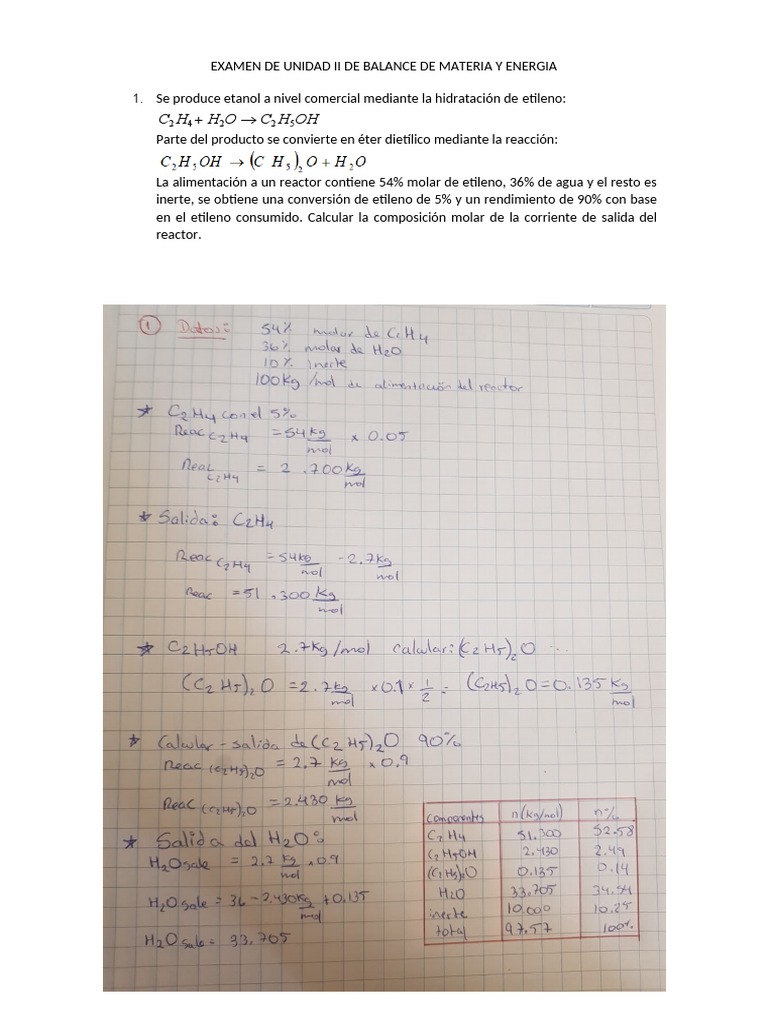 EXAMEN DE UNIDAD II DE BALANCE DE MATERIA Y ENERGIA
1. Se produce etanol a nivel comercial mediante la hidratación de etileno:
C₂H₄ + H₂O → C₂H₅OH
Parte del producto se convierte en éter dietílico mediante la reacción:
C₂H₅OH → (C H₅)₂O + H₂O
La alimentación a un reactor contiene 54% molar de etileno, 36% de agua y el resto es
inerte, se obtiene una conversión de etileno de 5% y un rendimiento de 90% con base
en el etileno consumido. Calcular la composición molar de la corriente de salida del
reactor.
① Datos: 54% molar de C₂H₄
36% molar de H₂O
10% inerte
100Kg/mol de alimentación del reactor
* C₂H₄ con el 5%
Reac C₂H₄ = 54 Kg/mol x 0.05
Reac C₂H₄ = 2.700 Kg/mol
* Salida: C₂H₄
Reac C₂H₄ = 54 kg/mol - 2.7 kg/mol
Reac = 51.300 Kg/mol
* C₂H₅OH 2.7 Kg/mol calular: (C₂H₅)₂O ...
(C₂H₅)₂O = 2.7 kg/mol x 0.1 x 1/2 = (C₂H₅)₂O = 0.135 Kg/mol
* Calcular - salida de (C₂H₅)₂O 90%
Reac (C₂H₅)₂O = 2.7 kg/mol x 0.9
Reac (C₂H₅)₂O = 2.430 kg/mol
* Salida del H₂O:
H₂O sale = 2.7 kg/mol x 0.9
H₂O sale = 36 - 2.430 kg/mol + 0.135
H₂O sale = 33.705
componentes n(kg/mol) n%
C₂H₄ 51.300 52.58
C₂H₅OH 2.430 2.49
(C₂H₅)₂O 0.135 0.14
H₂O 33.705 34.54
inerte 10.000 10.25
total 97.57 100%